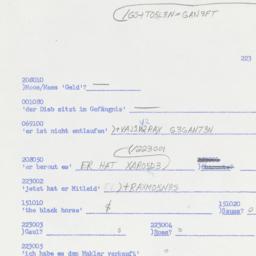 (/GS+TOSLEN=GANEFT
223
208010
)Moos/Maas 'Geld'?
001080
'der Dieb sitzt im Gefängnis'
069100
'er ist nicht entlaufen' )+
GEGANTEN
(/223001
208050
'er bereut es' ER HAT
223010
'jetzt hat er Mitleid' )+RAXMOSNES
151010 151020
'the black horse' $ )Gauss?
223003 223004
)Gaul? )Ross?
223005
'ich habe es dem Makler verkauft'